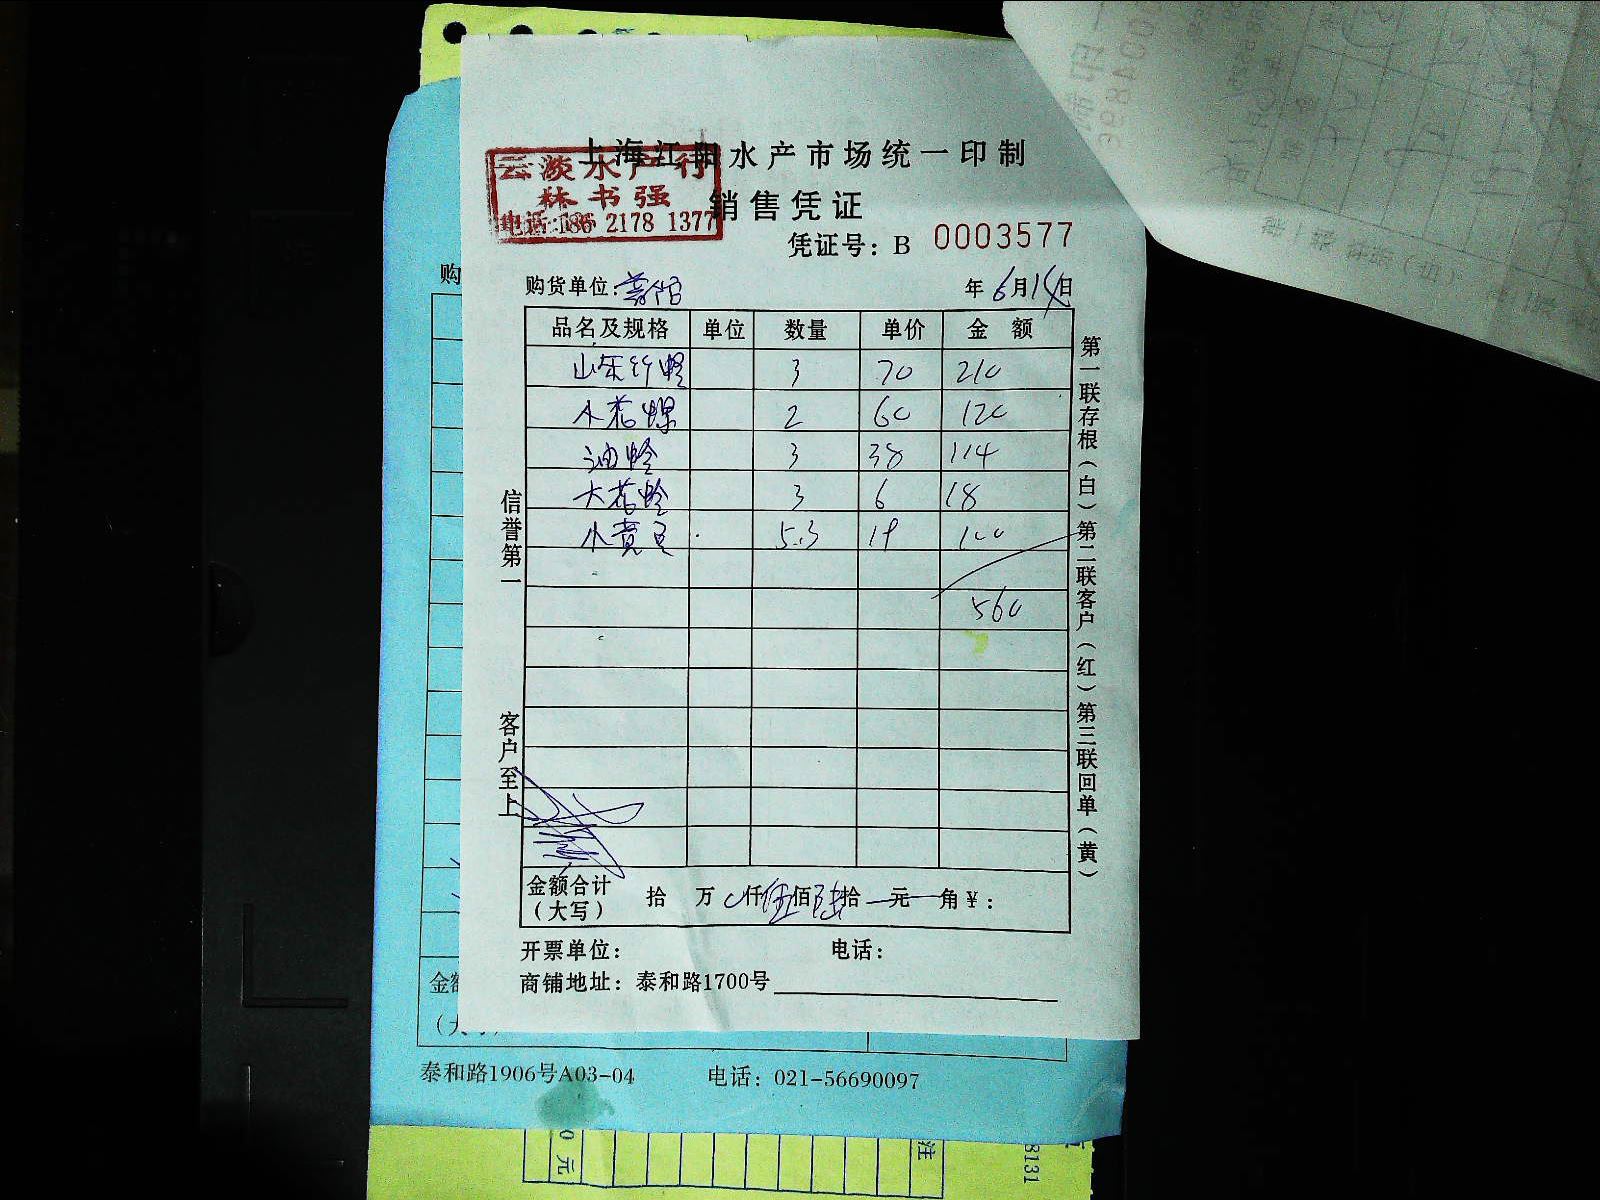 上海江阳水产市场统一印制
云淡水产行
林书强
电话:186 2178 1377
销售凭证
凭证号：B 0003577
购货单位:
年 6月14日
品名及规格 单位 数量 单价 金额
山东竹蛏 3 70 210
小花螺 2 60 120
油蛤 3 38 114
大花蛤 3 6 18
小黄鱼 5.3 19 100
560
信誉第一
客户至上
第一联存根（白）第二联客户（红）第三联回单（黄）
金额合计（大写） 拾 万 仟伍佰陆拾 元 角¥：
开票单位： 电话：
商铺地址：泰和路1700号
购
金额
（大写）
泰和路1906号A03-04 电话：021-56690097
0元
注
3131